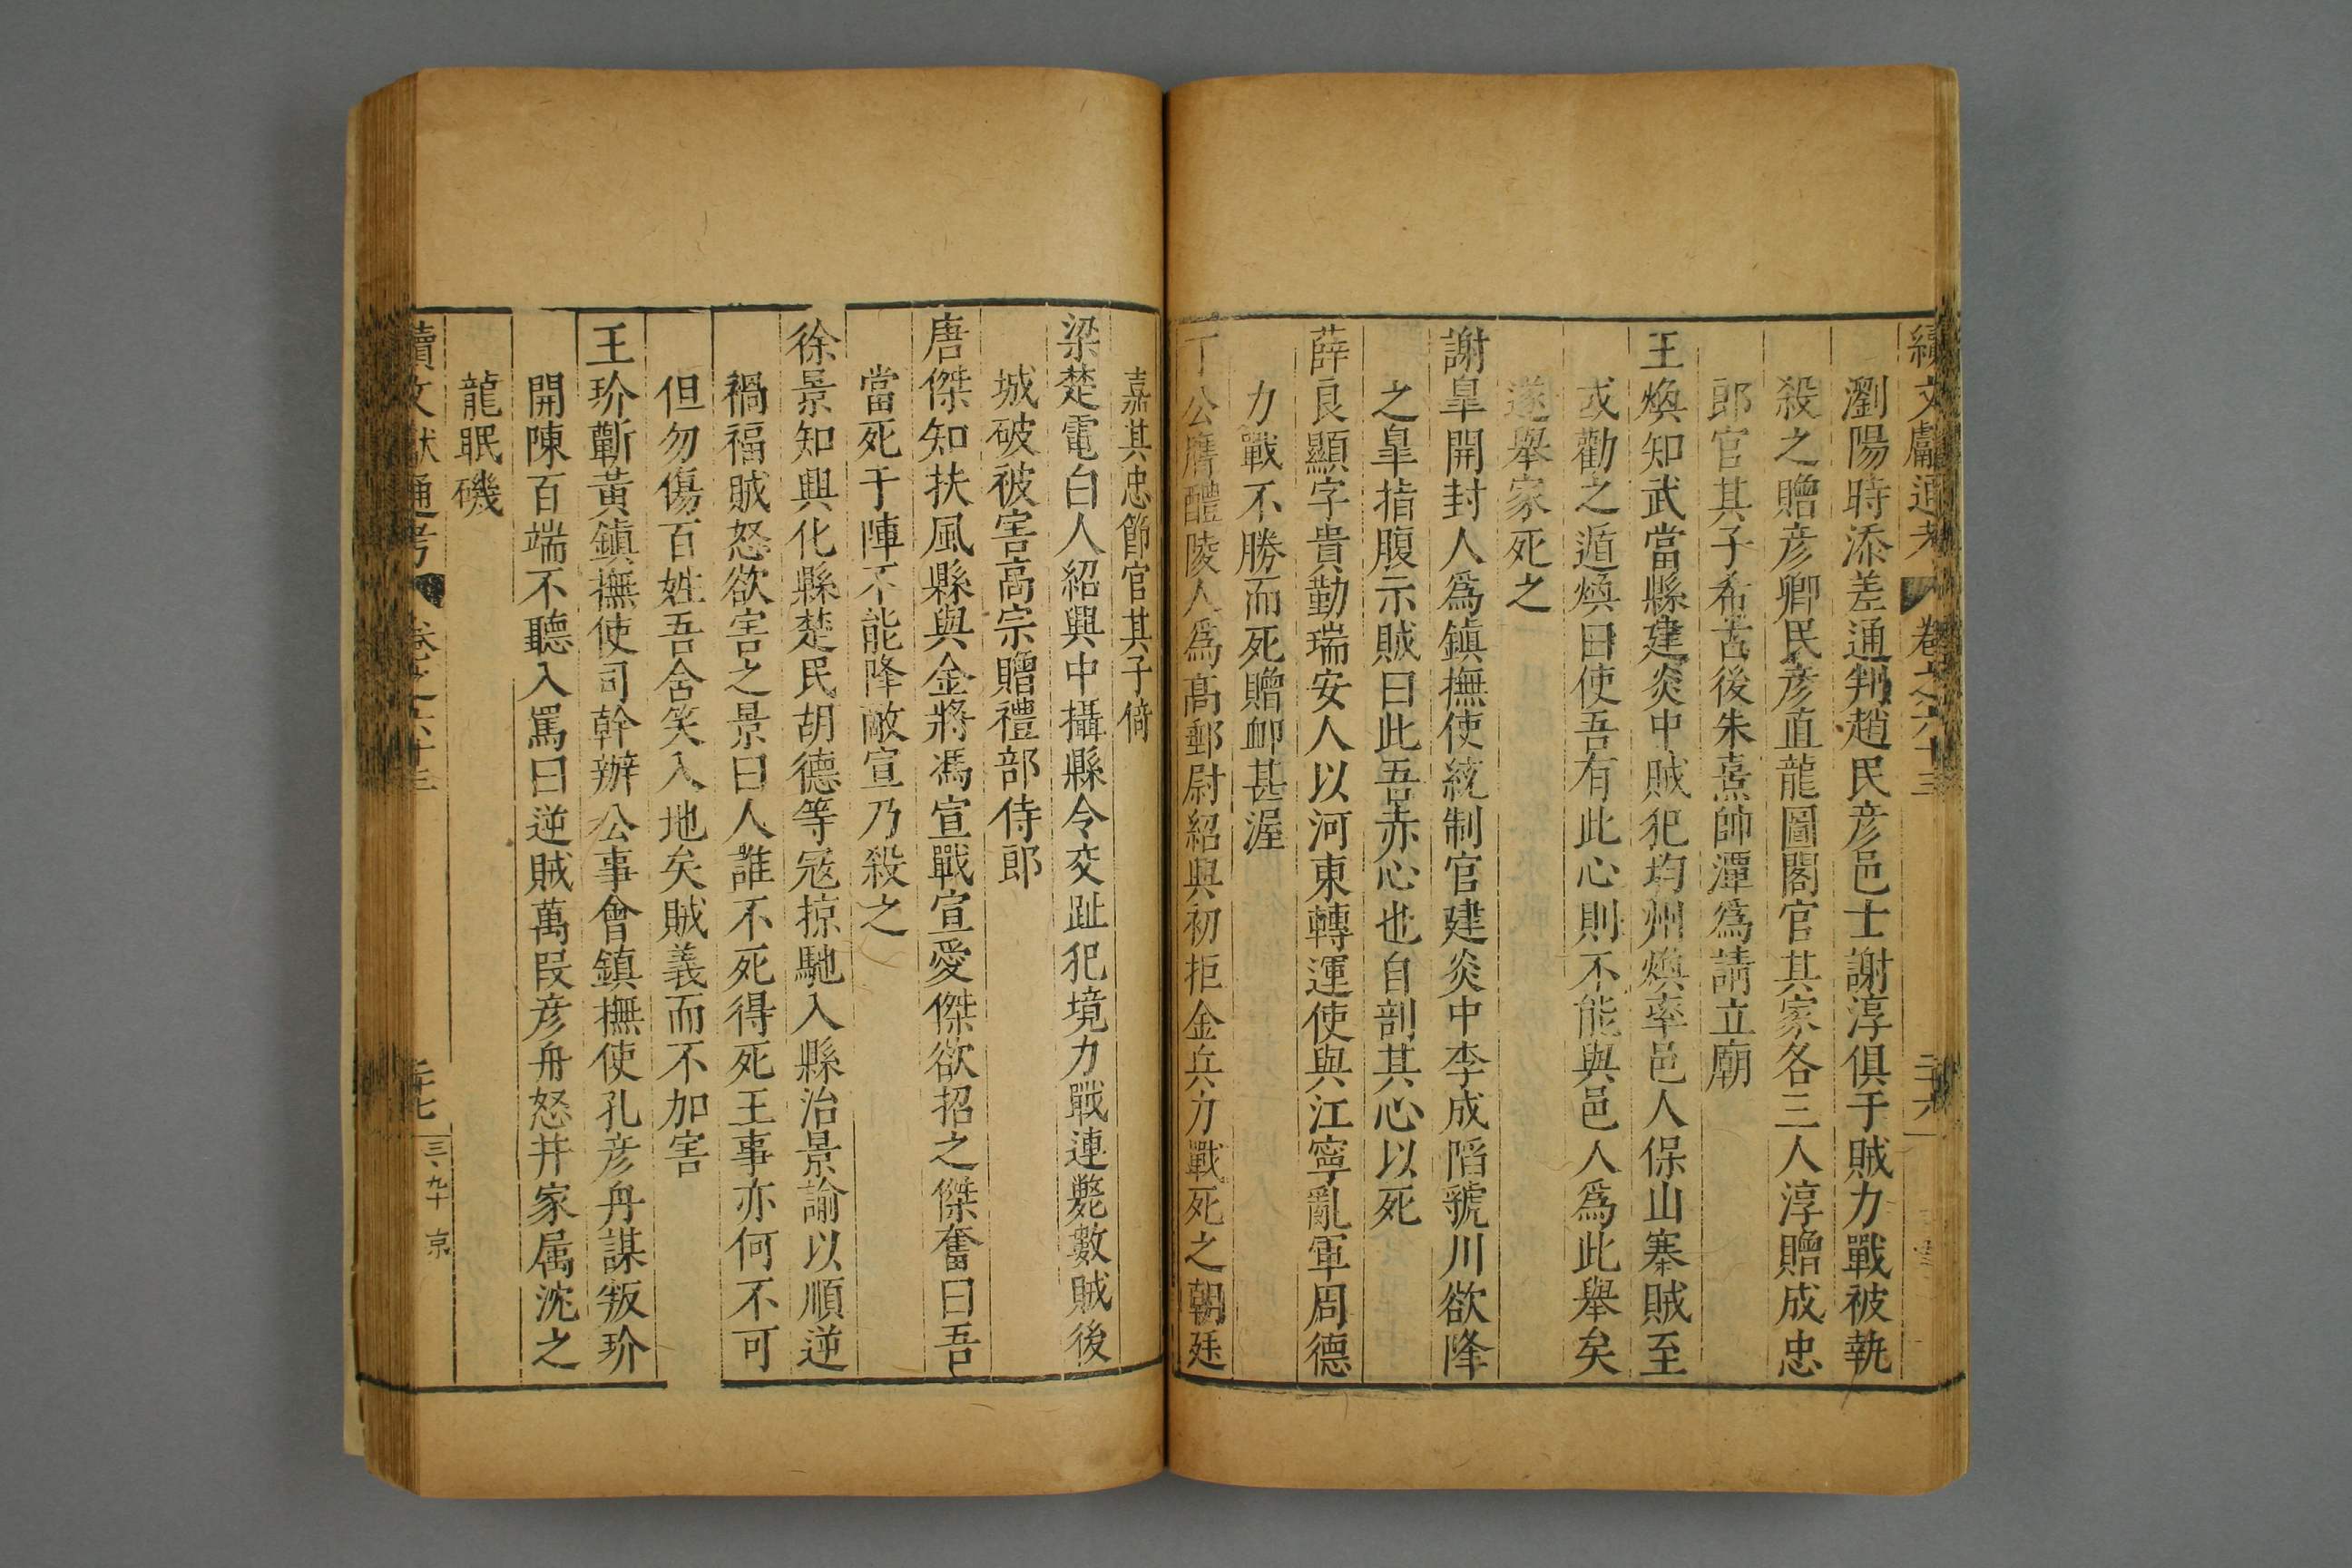 續文獻通考 卷之六十三 二十六
瀏陽時添差通判趙民彥邑士謝淳俱于賊力戰被執
殺之贈彥卿民彥直龍圖閣官其家各三人淳贈成忠
郎官其子希古後朱熹帥潭爲請立廟
王煥知武當縣建炎中賊犯均州煥率邑人保山寨賊至
或勸之遁煥曰使吾有此心則不能與邑人爲此舉矣
遂舉家死之
謝皐開封人爲鎮撫使統制官建炎中李成陷虢川欲降
之皐指腹示賊曰此吾赤心也自剖其心以死
薛良顯字貴勤瑞安人以河東轉運使與江寧亂軍周德
力戰不勝而死贈卹甚渥
丁公膺醴陵人爲高郵尉紹興初拒金兵力戰死之朝廷
嘉其忠節官其子脩
梁楚電白人紹興中攝縣令交趾犯境力戰連斃數賊後
城破被害高宗贈禮部侍郎
唐傑知扶風縣與金將馮宣戰宣愛傑欲招之傑奮曰吾
當死于陣不能降敵宣乃殺之
徐景知興化縣楚民胡德等冦掠馳入縣治景諭以順逆
禍福賊怒欲害之景曰人誰不死得死王事亦何不可
但勿傷百姓吾含笑入地矣賊義而不加害
王玠蘄黃鎮撫使司幹辦公事會鎮撫使孔彥舟謀叛玠
開陳百端不聽入罵曰逆賊萬段彥舟怒并家属沈之
龍眠磯
續文獻通考 卷之六十三 二十七 三九十 京